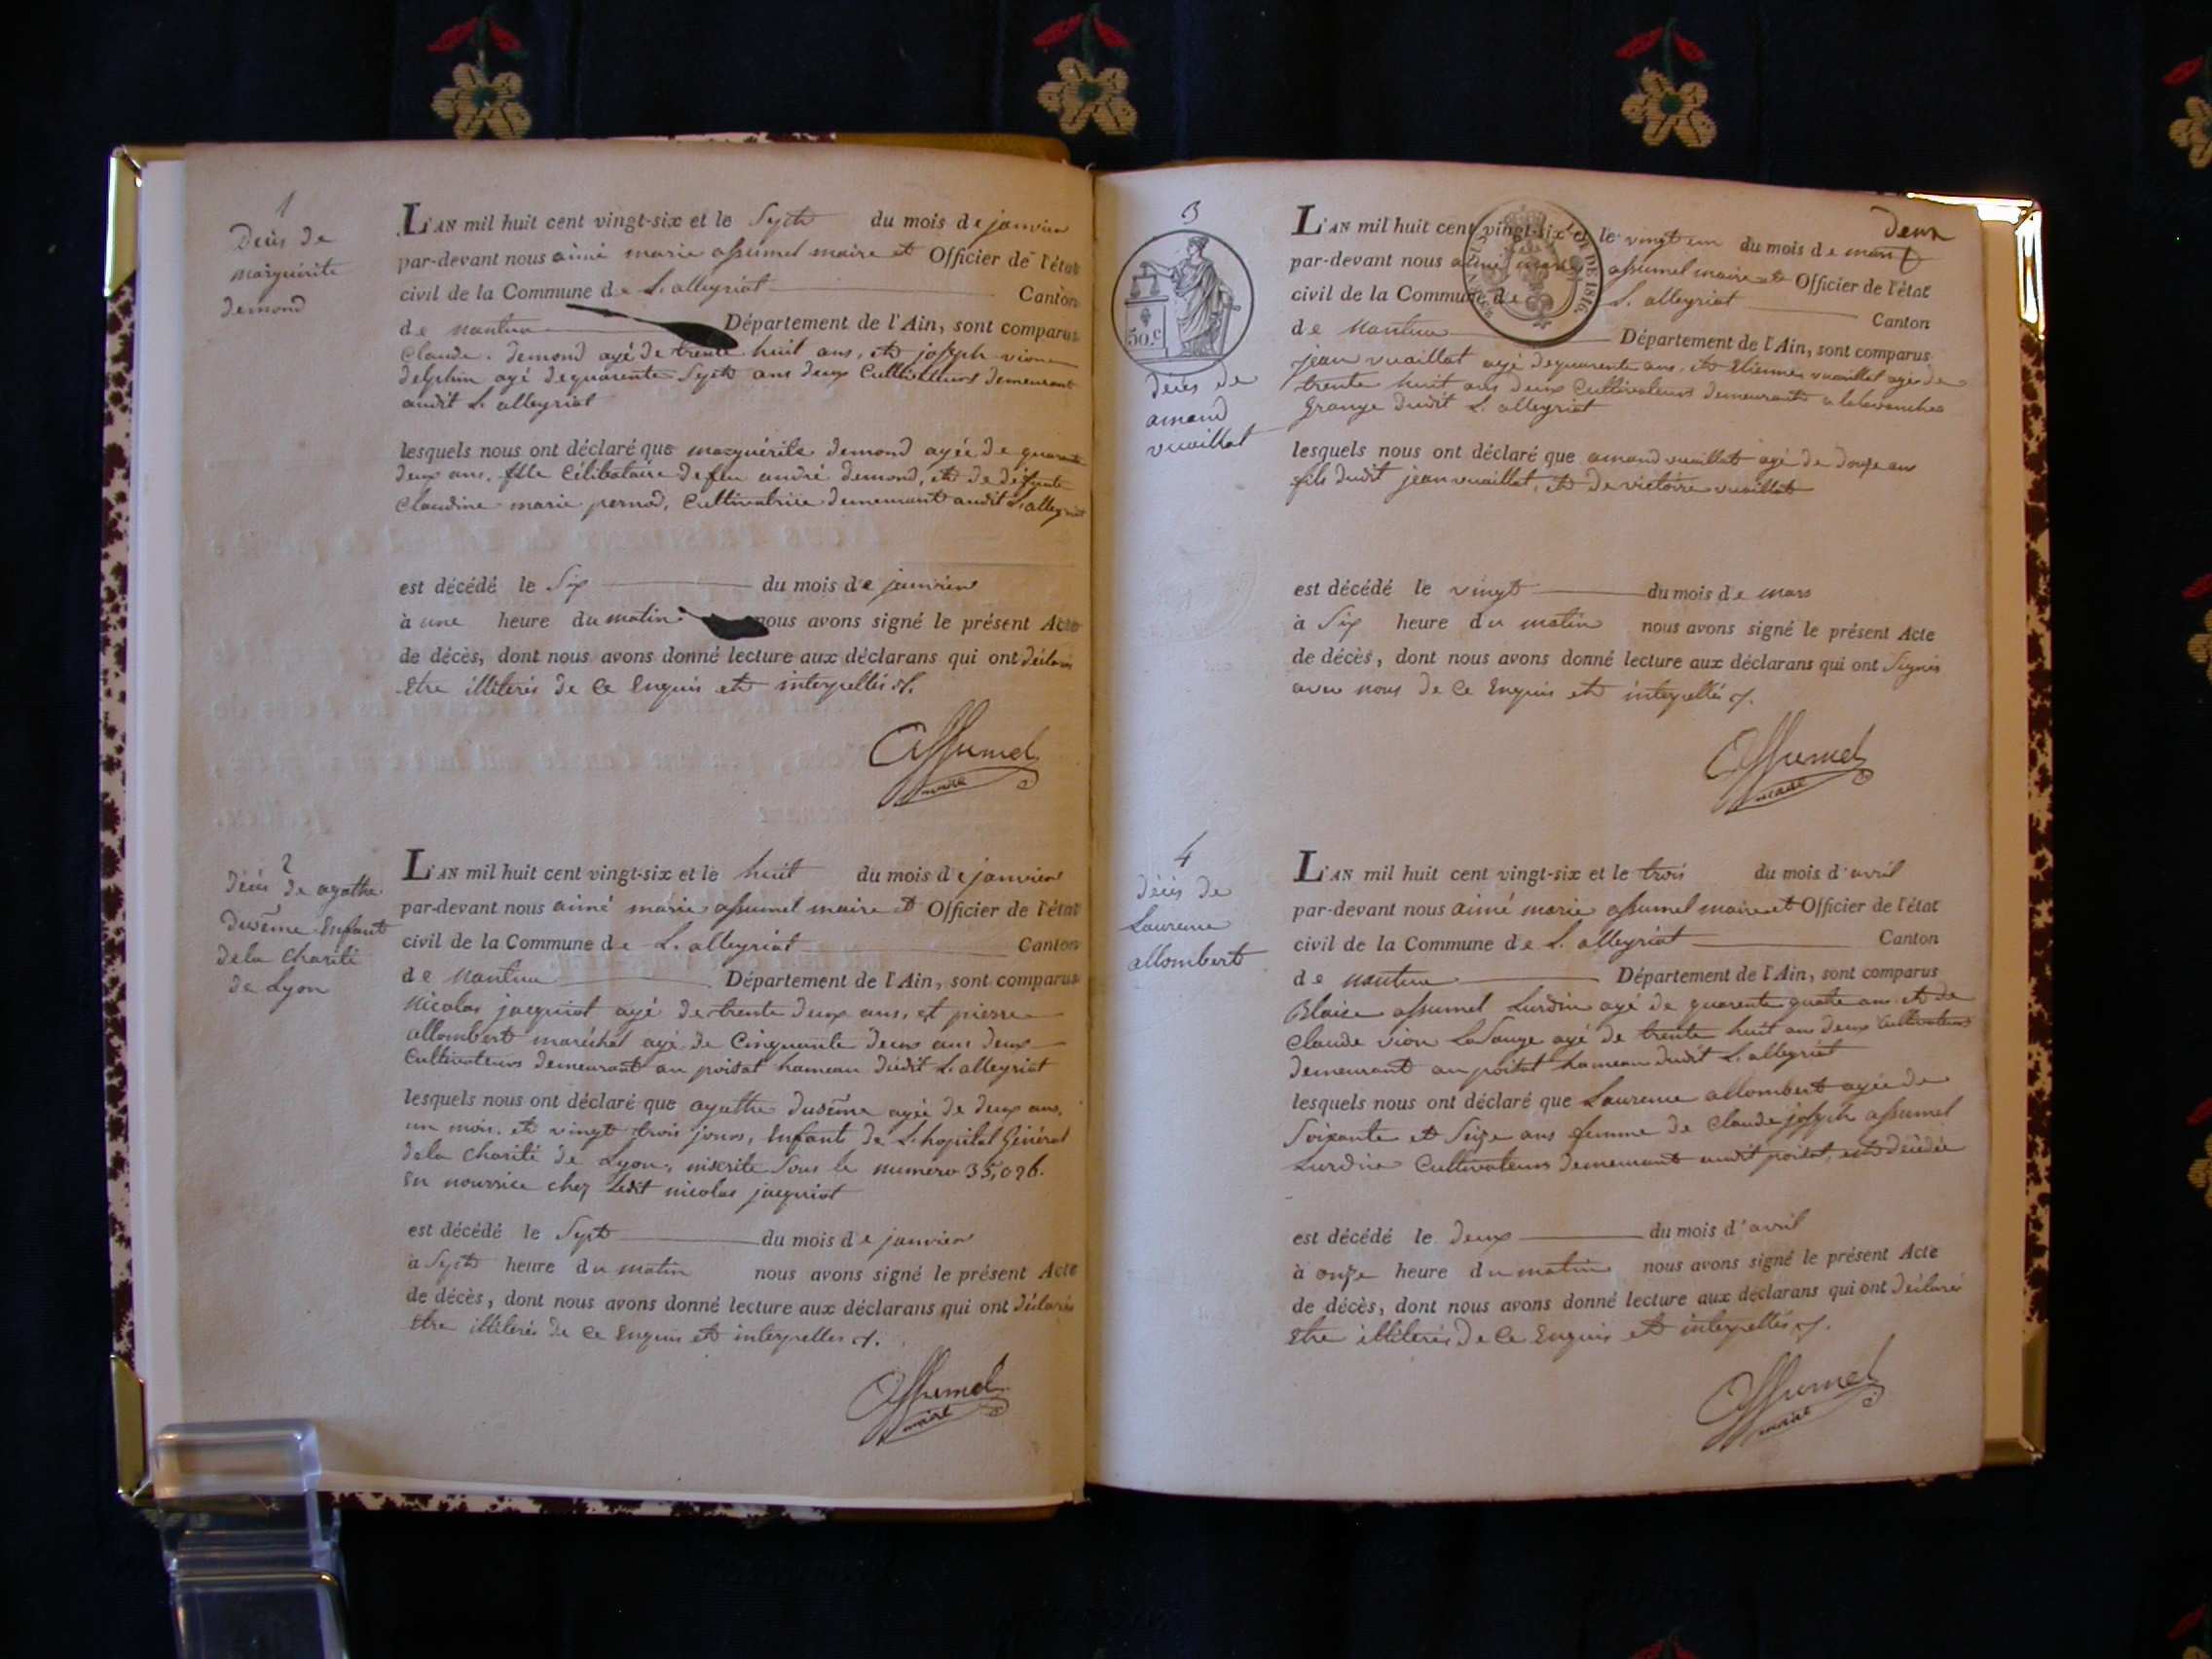 1
Décès de
marguérite
demond
L'AN mil huit cent vingt-six et le Sept du mois de janvier
par-devant nous aimé marie assumel maire et Officier de l'état
civil de la Commune de L. alleyriat Canton
de Nantua Département de l'Ain, sont comparus
Claude demond agé de trente huit ans, et joseph vion
delphin agé de quarente Sept ans deux Cultivateurs demeurant
audit L. alleyriat
lesquels nous ont déclaré que marguérite demond agée de quarante
deux ans, fille Célibataire de feu andré demond, et de défunte
Claudine marie pernod, Cultivatrice demeurant audit L. alleyriat
est décédé le Six du mois de janvier
à une heure du matin nous avons signé le présent Acte
de décès, dont nous avons donné lecture aux déclarans qui ont déclarés
Etre illiterés de Ce Enquis et interpellés
Assumel
maire
2
décès de agathe
dusême Enfant
de la Charité
de Lyon
L'AN mil huit cent vingt-six et le huit du mois de janvier
par-devant nous aimé marie assumel maire et Officier de l'état
civil de la Commune de L. alleyriat Canton
de Nantua Département de l'Ain, sont comparus
Nicolas jacquiot agé de trente deux ans, et pierre
allombert maréchal agé de Cinquante deux ans deux
Cultivateurs demeurant au poisat hameau dudit L. alleyriat
lesquels nous ont déclaré que agathe dusême agée de deux ans,
un mois, et vingt trois jours, Enfant de L. hopital Général
de la Charité de Lyon, inscrite Sous le numero 35,026.
En nourrice chez Ledit nicolas jacquiot
est décédé le Sept du mois de janvier
à Sept heure du matin nous avons signé le présent Acte
de décès, dont nous avons donné lecture aux déclarans qui ont déclarés
Etre illiterés de Ce Enquis et interpellés
Assumel
maire
deux
3
50.c
décès de
amand
vuaillat
L'AN mil huit cent vingt-six et le vingt un du mois de mars
par-devant nous aimé marie assumel maire et Officier de l'état
civil de la Commune de L. alleyriat Canton
DE 1816.
de Nantua Département de l'Ain, sont comparus
jean vuaillat agé de quarente ans, et Etienne vuaillat agé de
trente huit ans deux Cultivateurs demeurants
Grange dudit L. alleyriat
lesquels nous ont déclaré que amand vuaillat agé de douze ans
fils dudit jean vuaillat, et de victoire vuaillat
est décédé le vingt du mois de mars
à Six heure du matin nous avons signé le présent Acte
de décès, dont nous avons donné lecture aux déclarans qui ont Signés
avec nous de Ce Enquis et interpellés
Assumel
maire
4
décès de
Laurence
allombert
L'AN mil huit cent vingt-six et le trois du mois d'avril
par-devant nous aimé marie assumel maire et Officier de l'état
civil de la Commune de L. alleyriat Canton
de Nantua Département de l'Ain, sont comparus
Blaise assumel Lurdin agé de quarente quatre ans et de
Claude vion agé de trente huit ans deux Cultivateurs
demeurant au poisat hameau dudit L. alleyriat
lesquels nous ont déclaré que Laurence allombert agée de
Soixante et Seize ans femme de Claude joseph assumel
Lurdin Cultivateurs demeurant audit poisat, est décédée
est décédé le deux du mois d'avril
à onze heure du matin nous avons signé le présent Acte
de décès, dont nous avons donné lecture aux déclarans qui ont déclaré
Etre illiterés de Ce Enquis et interpellés
Assumel
maire